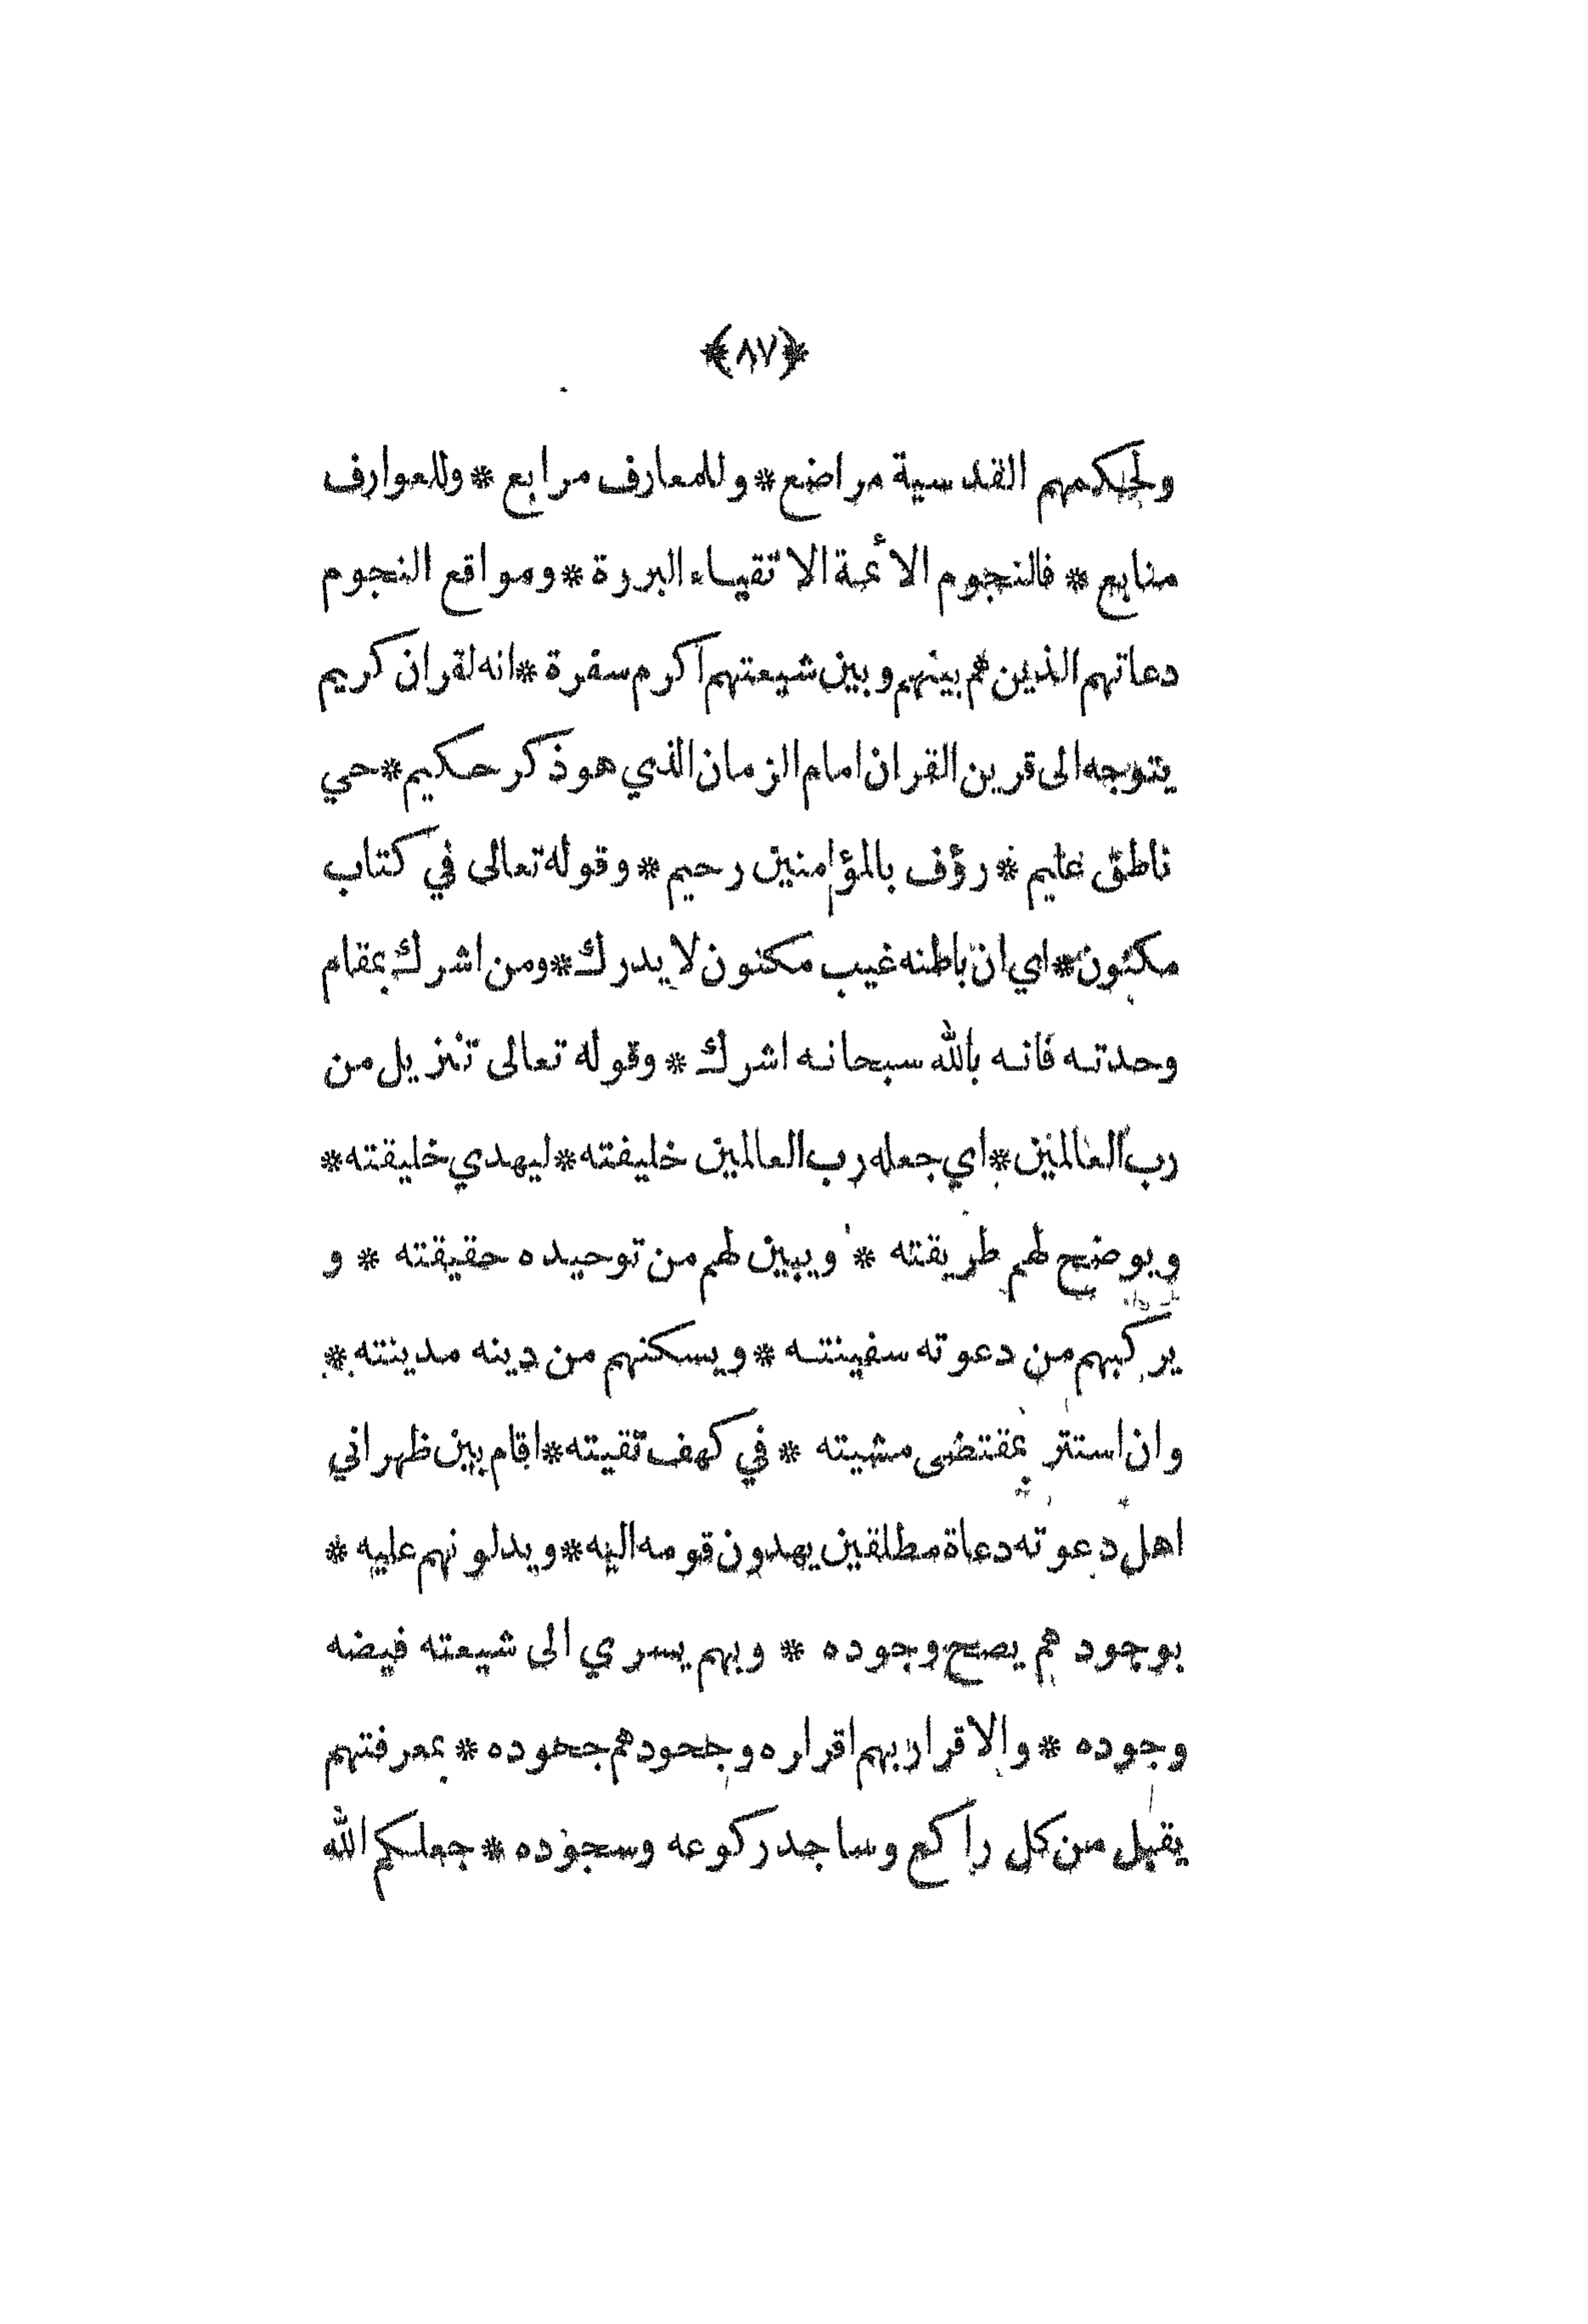 ﴿٨٧﴾
ولحكمهم القدسية مراضع * وللمعارف مرابع * وللعوارف
منابع * فالنجوم الأئمة الاتقياء البررة * ومواقع النجوم
دعاتهم الذين هم بينهم وبين شيعتهم اكرم سفرة * انه لقران كريم
يتوجه الى قرين القران امام الزمان الذي هو ذكر حكيم * حي
ناطق عليم * رؤف بالمؤامنين رحيم * وقوله تعالى في كتاب
مكنون * اي ان باطنه غيب مكنون لا يدرك * ومن اشرك بمقام
وحدته فانه بالله سبحانه اشرك * وقوله تعالى تنزيل من
رب العالمين * اي جعله رب العالمين خليفته * ليهدي خليقته *
ويوضح لهم طريقته * ويبين لهم من توحيده حقيقته * و
يركبهم من دعوته سفينته * ويسكنهم من دينه مدينته *
وان استتر بمقتضى مشيته * في كهف تقيته * اقام بين ظهراني
اهل دعوته دعاة مطلقين يهدون قومه اليه * ويدلونهم عليه *
بوجودهم يصح وجوده * وبهم يسري الى شيعته فيضه
وجوده * والاقرار بهم اقراره وجحودهم جحوده * بمعرفتهم
يقبل من كل راكع وساجد ركوعه وسجوده * جعلكم الله